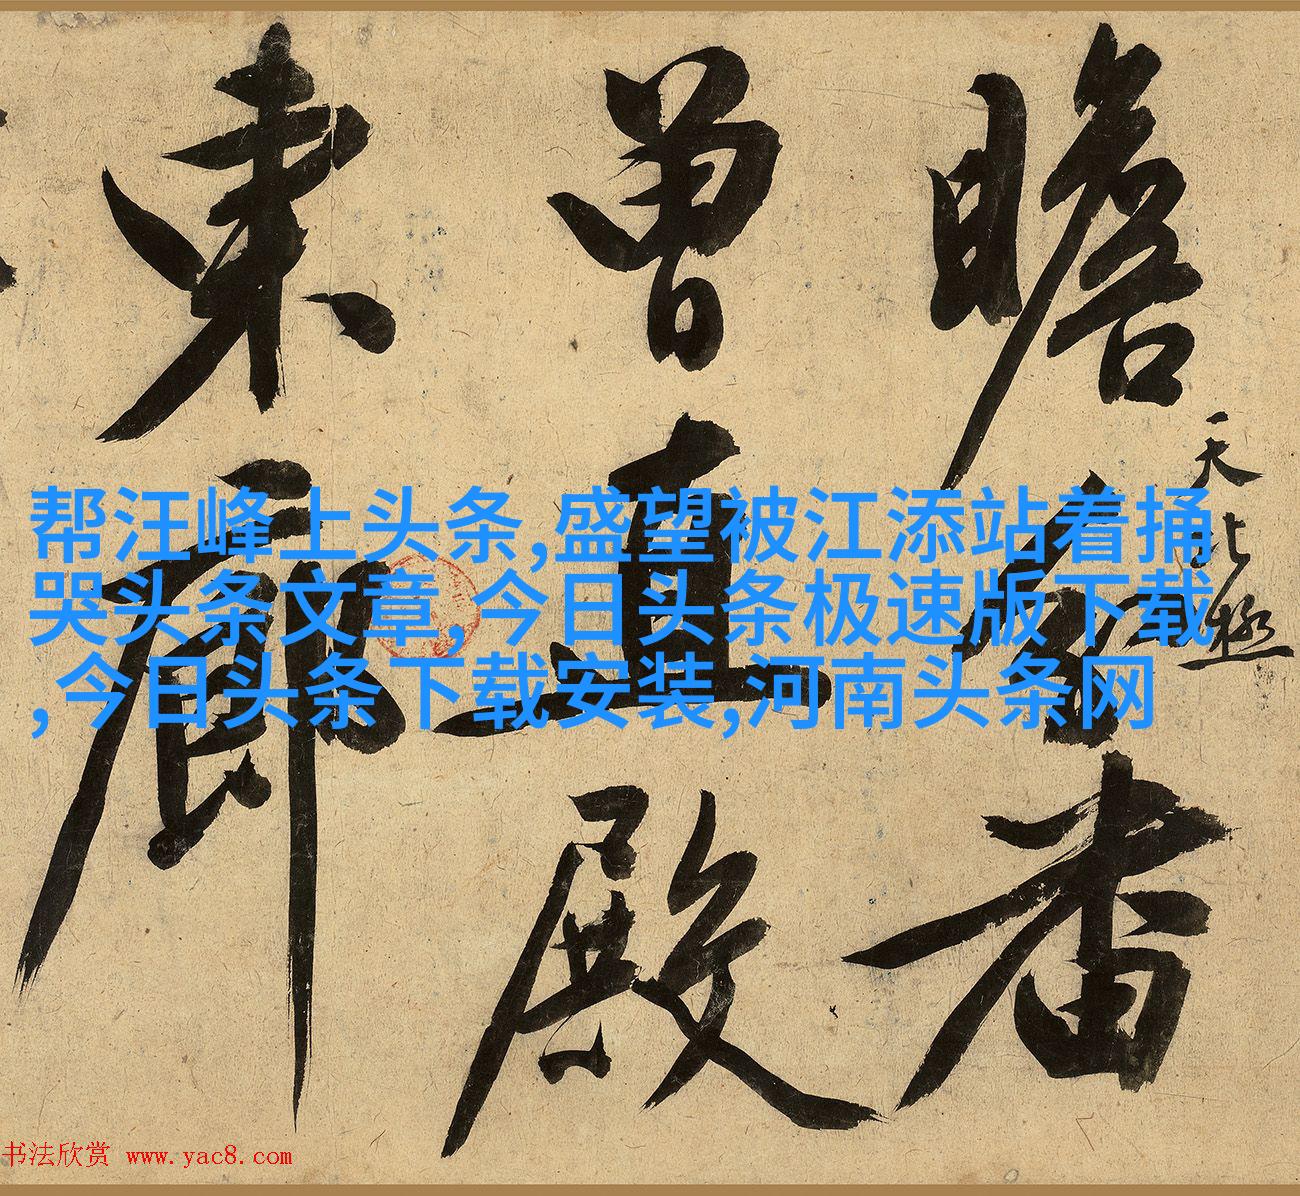 瞻
者
天北極
曾直殿
東廊
帮汪峰上头条,盛望被江添站着捅
哭头条文章,今日头条极速版下载
,今日头条下载安装,河南头条网
书法欣赏 www.yac8.com